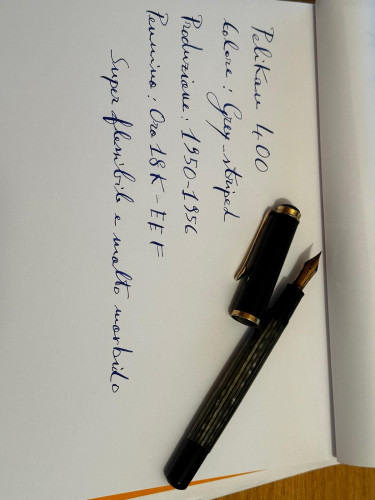 Pelikan 400
Colore: Grey-striped
Produzione: 1950-1956
Pennino: Oro 18K - EEF
Super flessibile e molto morbido